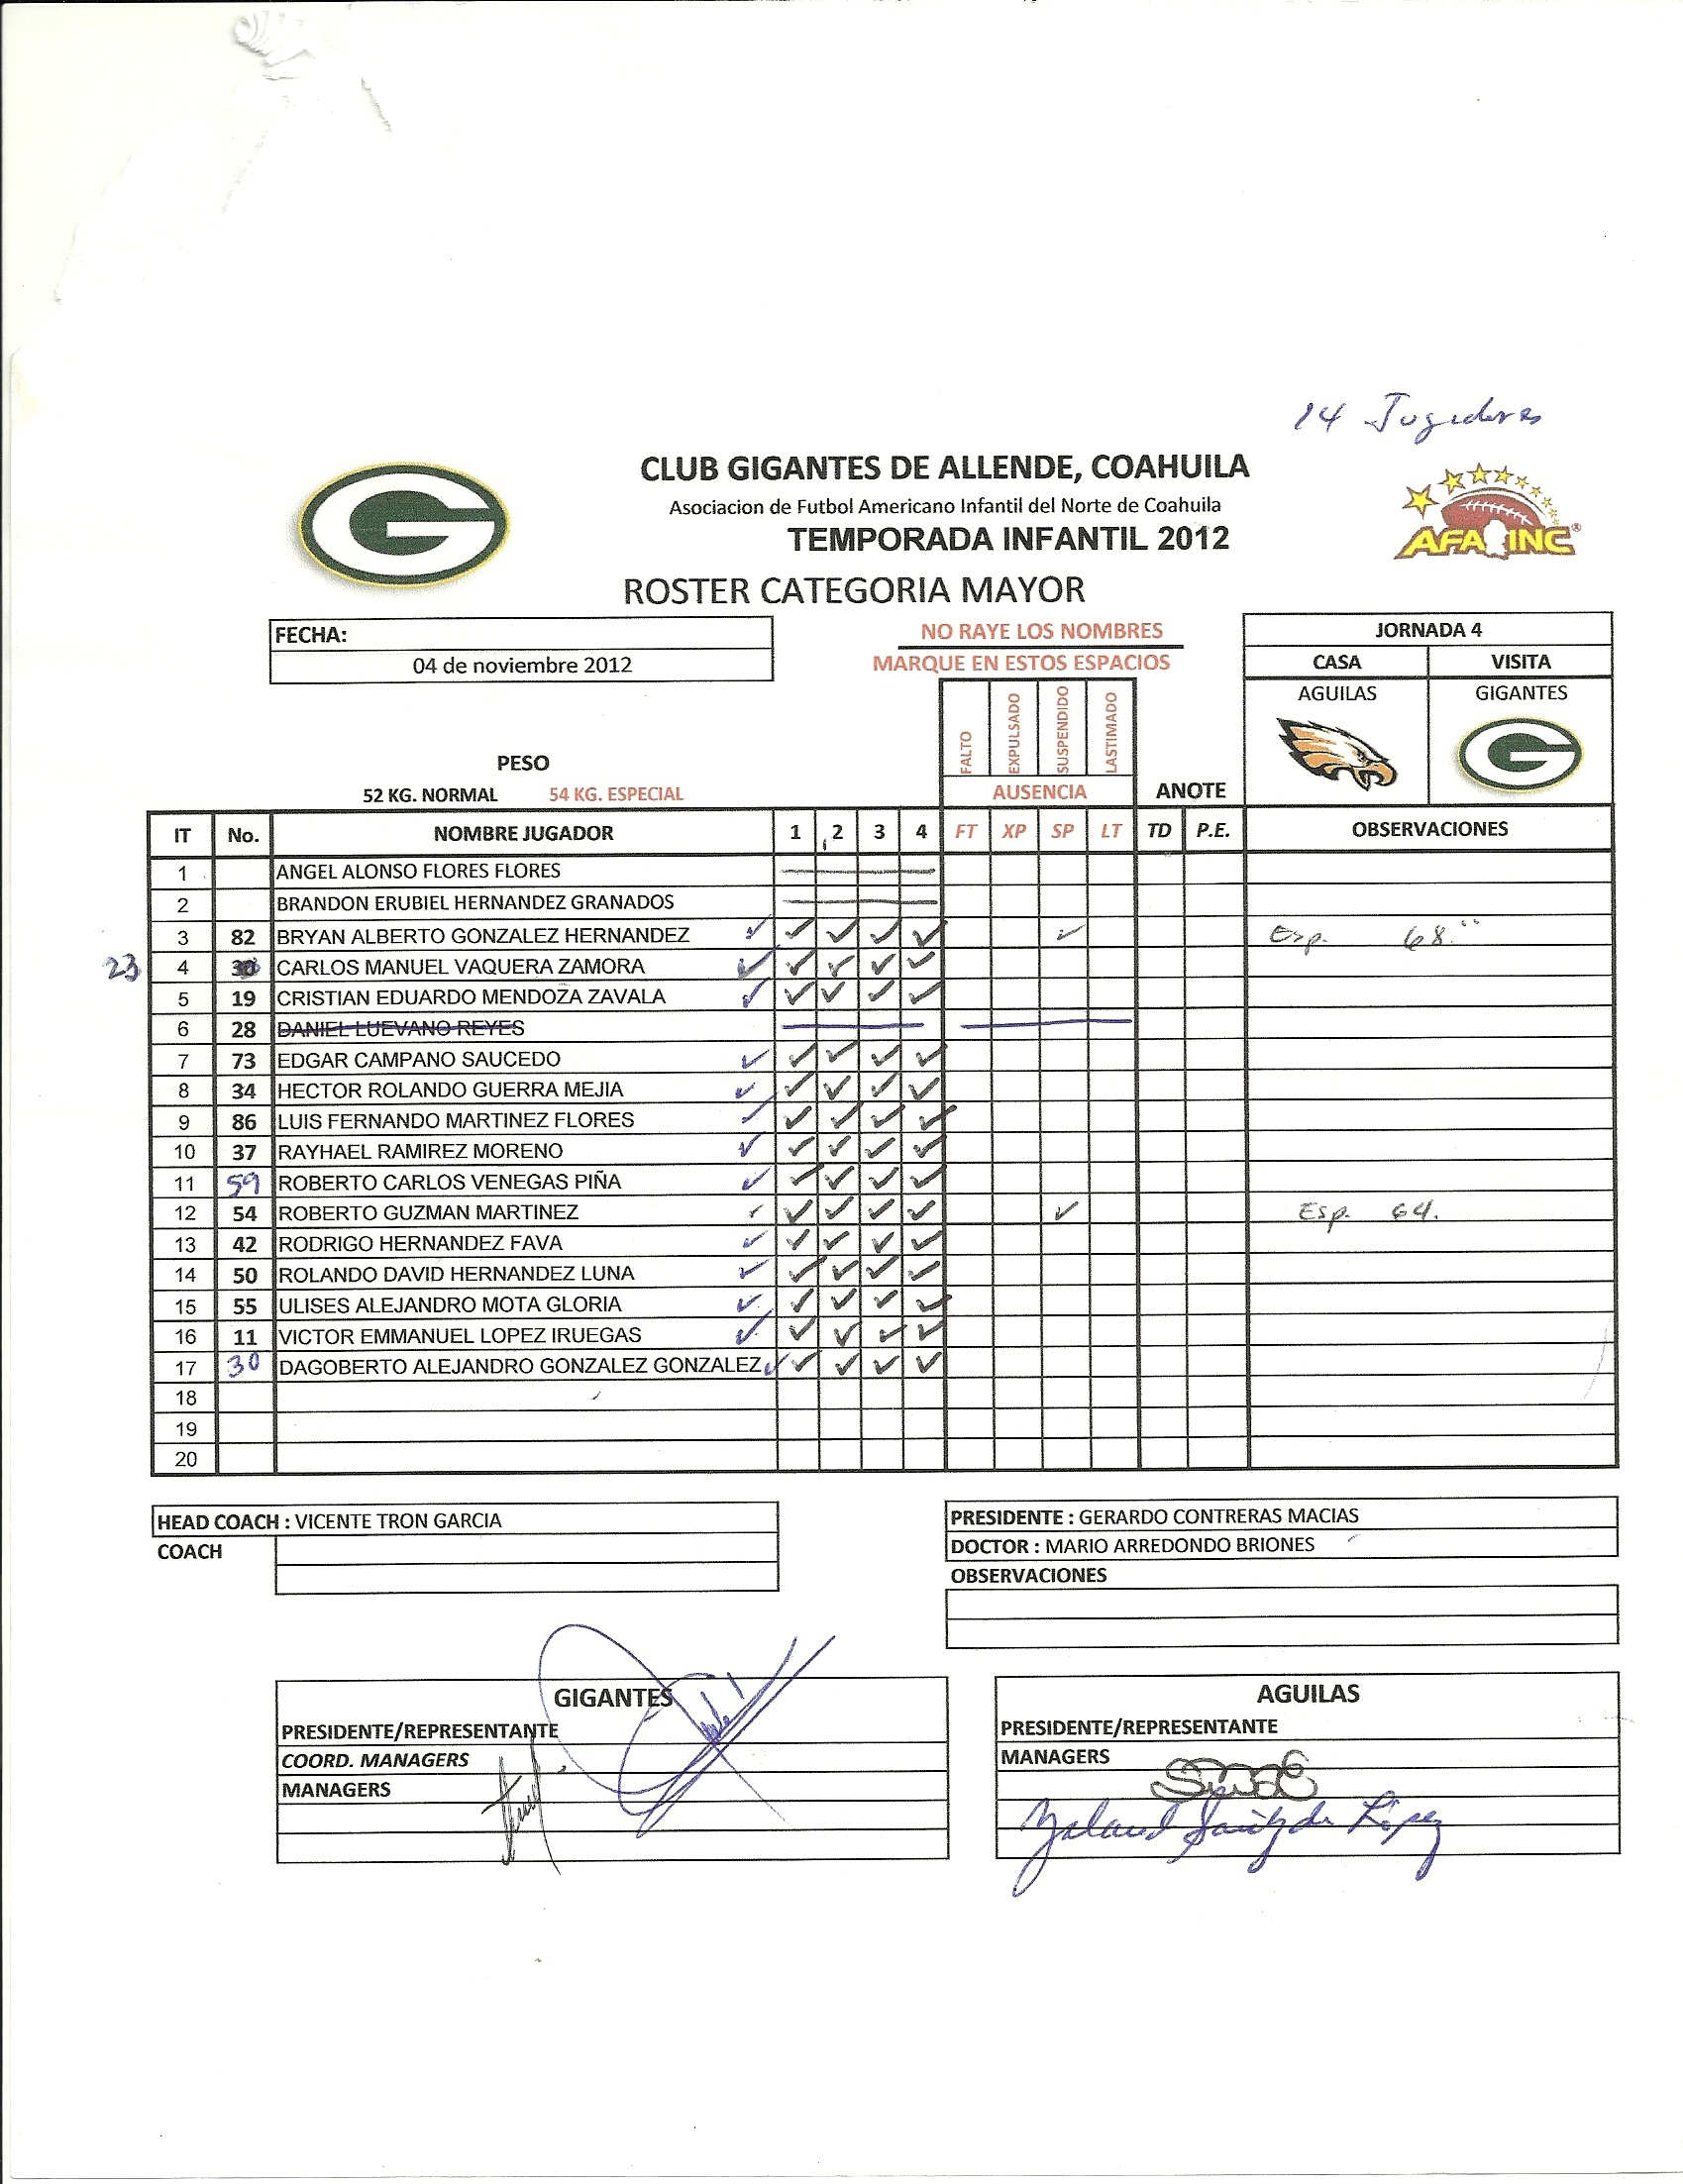 14 Jugadores
CLUB GIGANTES DE ALLENDE, COAHUILA
Asociacion de Futbol Americano Infantil del Norte de Coahuila
TEMPORADA INFANTIL 2012
AFA INC
ROSTER CATEGORIA MAYOR
FECHA:
04 de noviembre 2012
NO RAYE LOS NOMBRES
MARQUE EN ESTOS ESPACIOS
JORNADA 4
CASA VISITA
AGUILAS GIGANTES
FALTO EXPULSADO SUSPENDIDO LASTIMADO
PESO
52 KG. NORMAL 54 KG. ESPECIAL
AUSENCIA ANOTE
IT No. NOMBRE JUGADOR 1 2 3 4 FT XP SP LT TD P.E. OBSERVACIONES
1 ANGEL ALONSO FLORES FLORES
2 BRANDON ERUBIEL HERNANDEZ GRANADOS
3 82 BRYAN ALBERTO GONZALEZ HERNANDEZ ✓ ✓ ✓ ✓ ✓ ✓ Esp. 68.
23 4 30 CARLOS MANUEL VAQUERA ZAMORA ✓ ✓ ✓ ✓ ✓
5 19 CRISTIAN EDUARDO MENDOZA ZAVALA ✓ ✓ ✓ ✓ ✓
6 28 DANIEL LUEVANO REYES
7 73 EDGAR CAMPANO SAUCEDO ✓ ✓ ✓ ✓ ✓
8 34 HECTOR ROLANDO GUERRA MEJIA ✓ ✓ ✓ ✓ ✓
9 86 LUIS FERNANDO MARTINEZ FLORES ✓ ✓ ✓ ✓ ✓
10 37 RAYHAEL RAMIREZ MORENO ✓ ✓ ✓ ✓ ✓
11 59 ROBERTO CARLOS VENEGAS PIÑA ✓ ✓ ✓ ✓ ✓
12 54 ROBERTO GUZMAN MARTINEZ ✓ ✓ ✓ ✓ ✓ ✓ Esp. 64.
13 42 RODRIGO HERNANDEZ FAVA ✓ ✓ ✓ ✓ ✓
14 50 ROLANDO DAVID HERNANDEZ LUNA ✓ ✓ ✓ ✓ ✓
15 55 ULISES ALEJANDRO MOTA GLORIA ✓ ✓ ✓ ✓ ✓
16 11 VICTOR EMMANUEL LOPEZ IRUEGAS ✓ ✓ ✓ ✓ ✓
17 30 DAGOBERTO ALEJANDRO GONZALEZ GONZALEZ ✓ ✓ ✓ ✓ ✓
18
19
20
HEAD COACH : VICENTE TRON GARCIA
COACH
PRESIDENTE : GERARDO CONTRERAS MACIAS
DOCTOR : MARIO ARREDONDO BRIONES
OBSERVACIONES
GIGANTES
PRESIDENTE/REPRESENTANTE
COORD. MANAGERS
MANAGERS
AGUILAS
PRESIDENTE/REPRESENTANTE
MANAGERS
de López